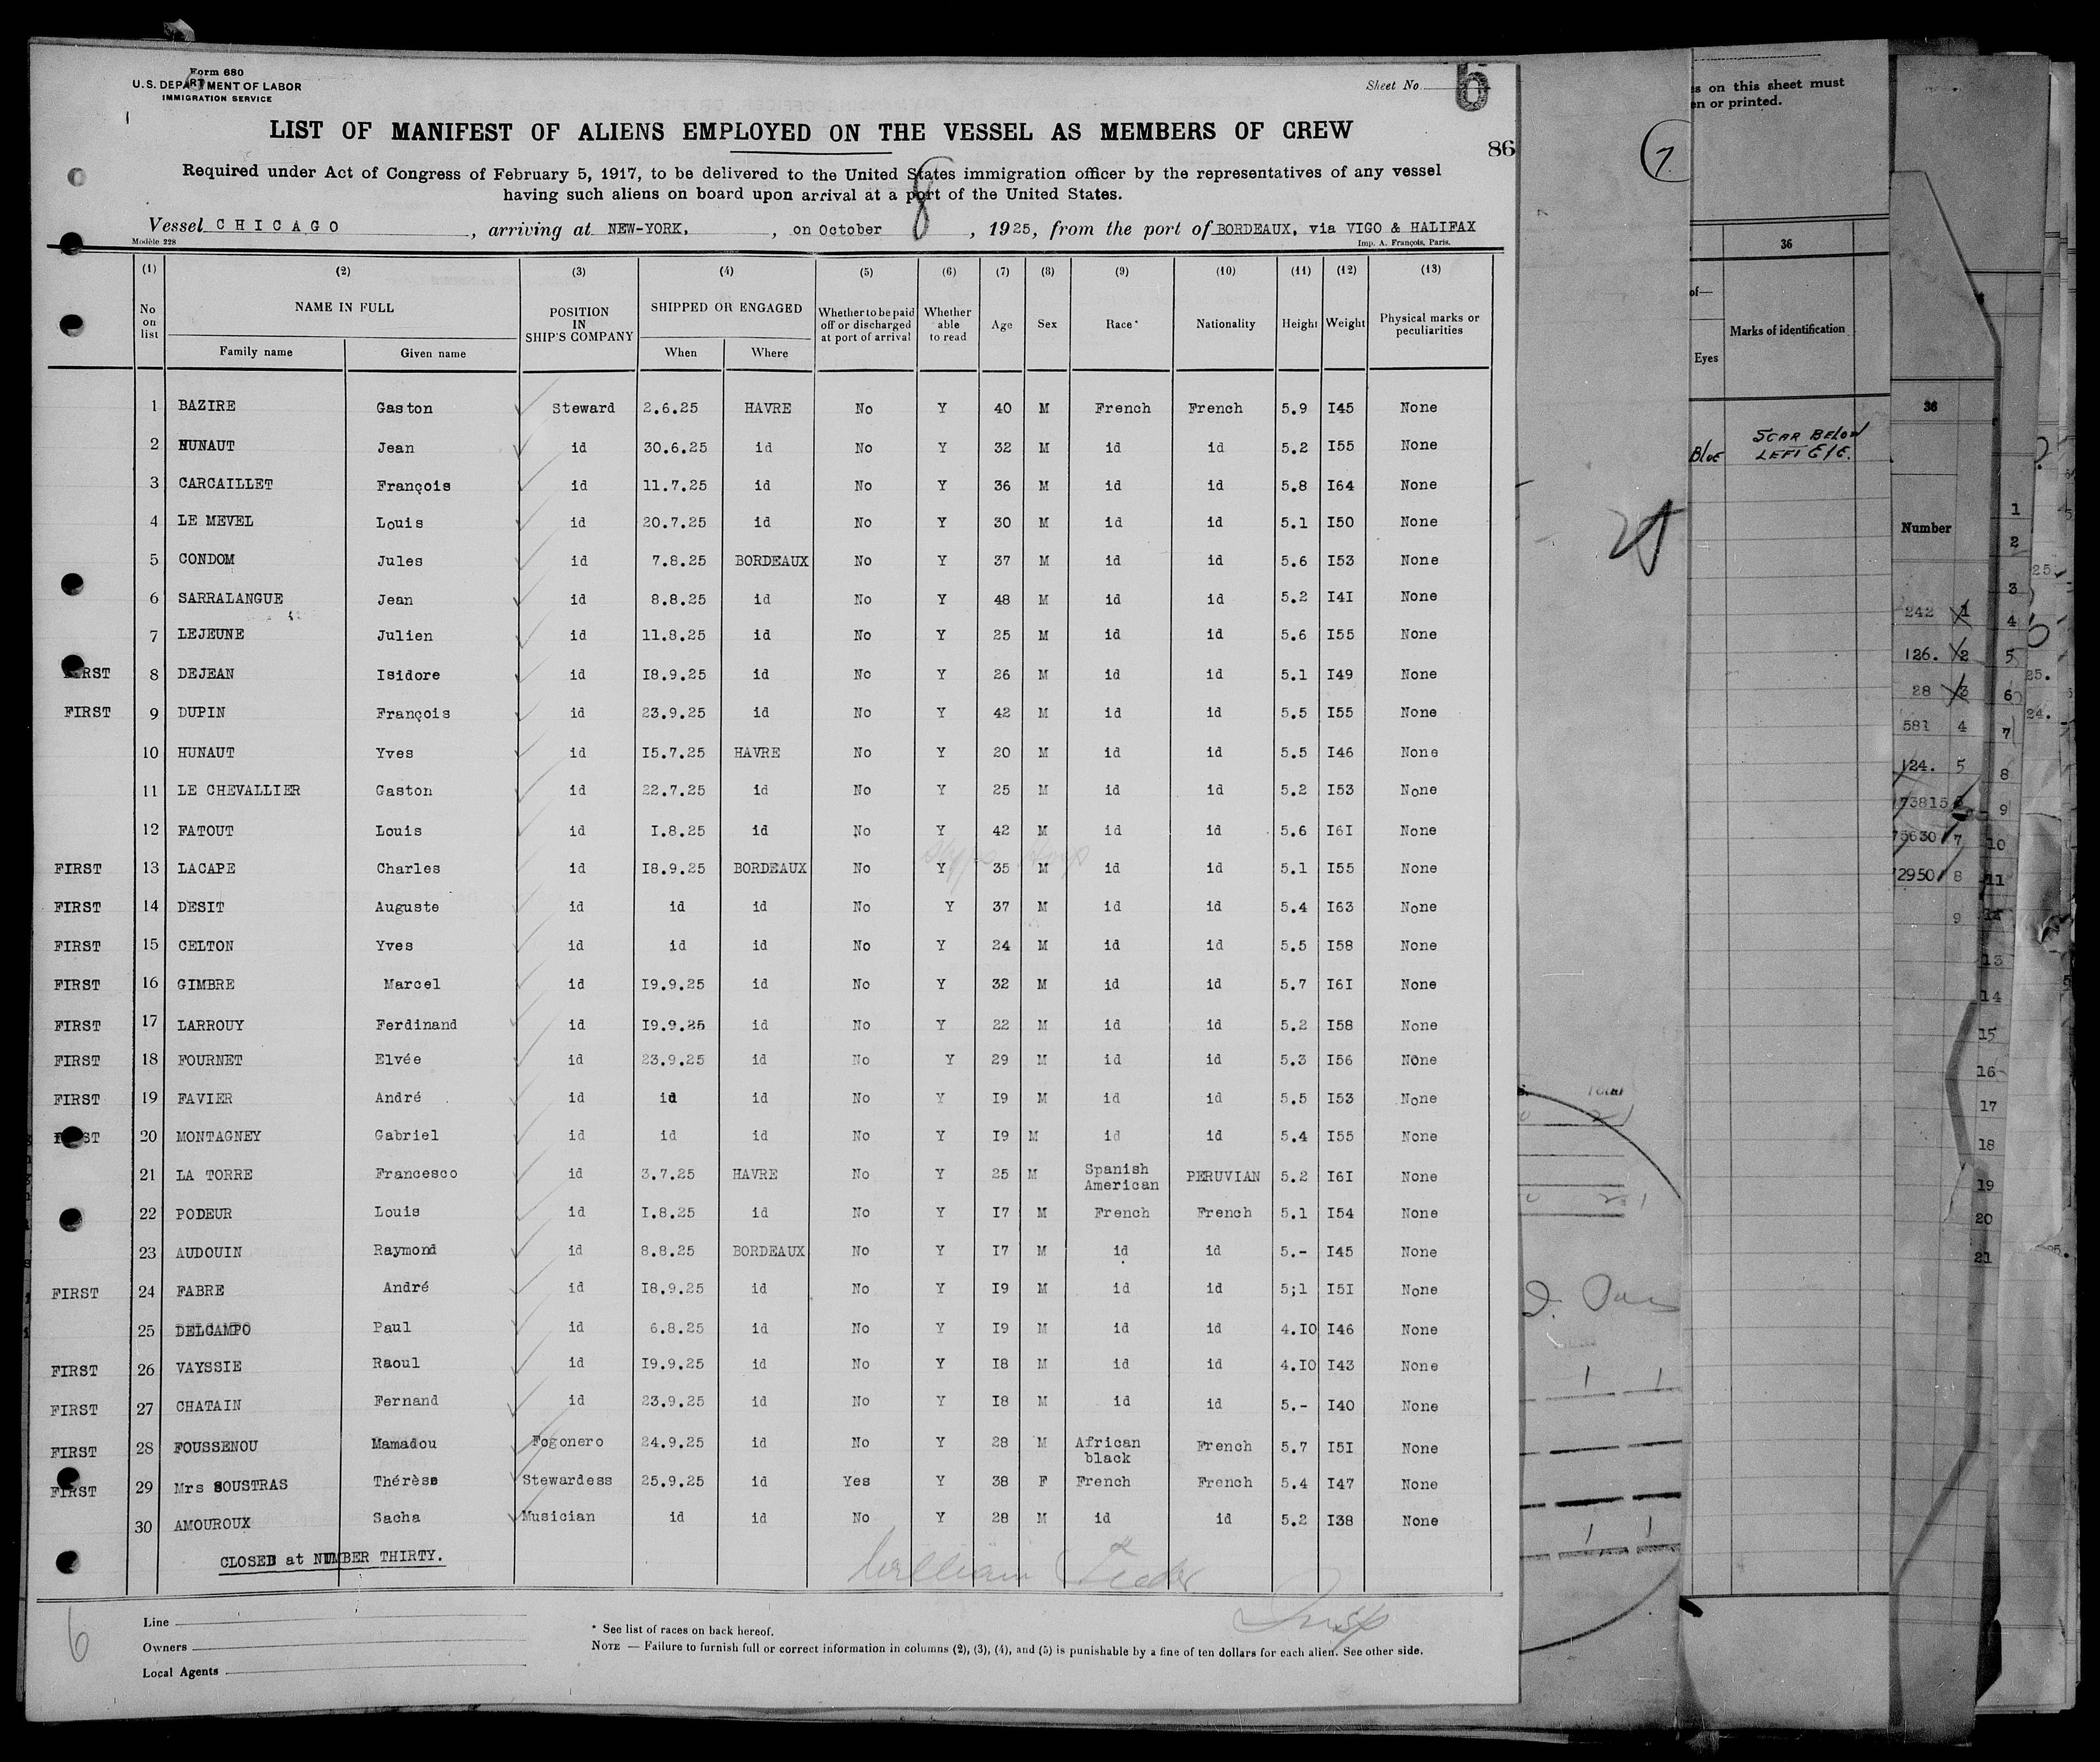 Form 680
U.S. DEPARTMENT OF LABOR
IMMIGRATION SERVICE
Sheet No 6
86
LIST OF MANIFEST OF ALIENS EMPLOYED ON THE VESSEL AS MEMBERS OF CREW
Required under Act of Congress of February 5, 1917, to be delivered to the United States immigration officer by the representatives of any vessel
having such aliens on board upon arrival at a port of the United States.
Vessel CHICAGO, arriving at NEW-YORK, , on October 8, 1925, from the port of BORDEAUX, via VIGO & HALIFAX
Modèle 228 Imp. A. François, Paris.
(1) (2) (3) (4) (5) (6) (7) (8) (9) (10) (11) (12) (13)
No on list NAME IN FULL Family name Given name POSITION IN SHIP'S COMPANY SHIPPED OR ENGAGED When Where Whether to be paid off or discharged at port of arrival Whether able to read Age Sex Race* Nationality Height Weight Physical marks or peculiarities
1 BAZIRE Gaston Steward 2.6.25 HAVRE No Y 40 M French French 5.9 I45 None
2 HUNAUT Jean id 30.6.25 id No Y 32 M id id 5.2 I55 None
3 CARCAILLET François id 11.7.25 id No Y 36 M id id 5.8 I64 None
4 LE MEVEL Louis id 20.7.25 id No Y 30 M id id 5.1 I50 None
5 CONDOM Jules id 7.8.25 BORDEAUX No Y 37 M id id 5.6 I53 None
6 SARRALANGUE Jean id 8.8.25 id No Y 48 M id id 5.2 I4I None
7 LEJEUNE Julien id 11.8.25 id No Y 25 M id id 5.6 I55 None
FIRST 8 DEJEAN Isidore id I8.9.25 id No Y 26 M id id 5.1 I49 None
FIRST 9 DUPIN François id 23.9.25 id No Y 42 M id id 5.5 I55 None
10 HUNAUT Yves id I5.7.25 HAVRE No Y 20 M id id 5.5 I46 None
11 LE CHEVALLIER Gaston id 22.7.25 id No Y 25 M id id 5.2 I53 None
12 FATOUT Louis id I.8.25 id No Y 42 M id id 5.6 I6I None
FIRST 13 LACAPE Charles id I8.9.25 BORDEAUX No Y 35 M id id 5.1 I55 None
FIRST 14 DESIT Auguste id id id No Y 37 M id id 5.4 I63 None
FIRST 15 CELTON Yves id id id No Y 24 M id id 5.5 I58 None
FIRST 16 GIMBRE Marcel id I9.9.25 id No Y 32 M id id 5.7 I6I None
FIRST 17 LARROUY Ferdinand id I9.9.25 id No Y 22 M id id 5.2 I58 None
FIRST 18 FOURNET Elvée id 23.9.25 id No Y 29 M id id 5.3 I56 None
FIRST 19 FAVIER André id id id No Y I9 M id id 5.5 I53 None
FIRST 20 MONTAGNEY Gabriel id id id No Y I9 M id id 5.4 I55 None
21 LA TORRE Francesco id 3.7.25 HAVRE No Y 25 M Spanish American PERUVIAN 5.2 I6I None
22 PODEUR Louis id I.8.25 id No Y I7 M French French 5.1 I54 None
23 AUDOUIN Raymond id 8.8.25 BORDEAUX No Y I7 M id id 5.- I45 None
FIRST 24 FABRE André id I8.9.25 id No Y I9 M id id 5;1 I5I None
25 DELCAMPO Paul id 6.8.25 id No Y I9 M id id 4.IO I46 None
FIRST 26 VAYSSIE Raoul id I9.9.25 id No Y I8 M id id 4.IO I43 None
FIRST 27 CHATAIN Fernand id 23.9.25 id No Y I8 M id id 5.- I40 None
FIRST 28 FOUSSENOU Mamadou Fogonero 24.9.25 id No Y 28 M African black French 5.7 I5I None
FIRST 29 Mrs SOUSTRAS Thérèse Stewardess 25.9.25 id Yes Y 38 F French French 5.4 I47 None
30 AMOUROUX Sacha Musician id id No Y 28 M id id 5.2 I38 None
CLOSED at NUMBER THIRTY.
William
Insp
6
Line
Owners
Local Agents
* See list of races on back hereof.
NOTE — Failure to furnish full or correct information in columns (2), (3), (4), and (5) is punishable by a fine of ten dollars for each alien. See other side.
7
Total
s on this sheet must
en or printed.
36
of—
Marks of identification
Eyes
Blue SCAR BELOW
LEFT EYE.
36
Number
242 1
126. 2
28 3
581 4
124. 5
73815
75630 7
2950 8
9
1
2
3
4
5
6
7
8
9
10
11
13
14
15
16
17
18
19
20
21